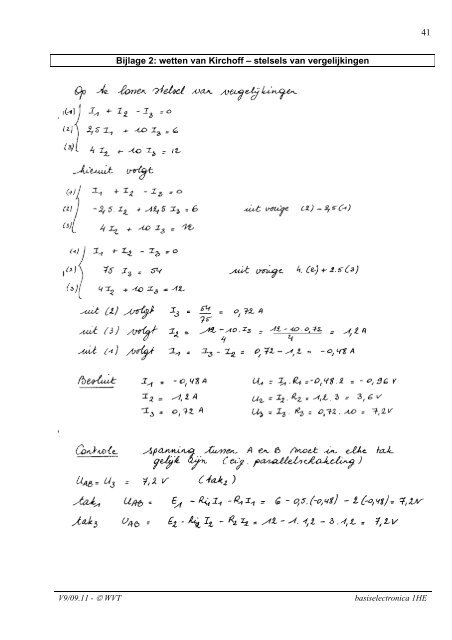 41
Bijlage 2: wetten van Kirchoff – stelsels van vergelijkingen
Op te lossen stelsel van vergelijkingen
(1) I₁ + I₂ - I₃ = 0
(2) 2,5 I₁ + 10 I₃ = 6
(3) 4 I₂ + 10 I₃ = 12
hieruit volgt
(1) I₁ + I₂ - I₃ = 0
(2) -2,5 I₂ + 12,5 I₃ = 6 uit vorige (2) - 2,5 (1)
(3) 4 I₂ + 10 I₃ = 12
(1) I₁ + I₂ - I₃ = 0
(2) 75 I₃ = 54 uit vorige 4.(2) + 2.5 (3)
(3) 4 I₂ + 10 I₃ = 12
uit (2) volgt I₃ = 54/75 = 0,72 A
uit (3) volgt I₂ = 12 - 10.I₃/4 = 12 - 10.0,72/4 = 1,2 A
uit (1) volgt I₁ = I₃ - I₂ = 0,72 - 1,2 = -0,48 A
Besluit I₁ = -0,48 A U₁ = I₁.R₁ = -0,48.2 = -0,96 V
I₂ = 1,2 A U₂ = I₂.R₂ = 1,2.3 = 3,6 V
I₃ = 0,72 A U₃ = I₃.R₃ = 0,72.10 = 7,2 V
Controle spanning tussen A en B moet in elke tak
gelijk zijn (eig. parallelschakeling)
U_AB = U₃ = 7,2 V (tak₂)
tak₁ U_AB = E₁ - Ri₁ I₁ - R₁ I₁ = 6 - 0,5.(-0,48) - 2(-0,48) = 7,2 V
tak₃ U_AB = E₂ - Ri₂ I₂ - R₂ I₂ = 12 - 1.1,2 - 3.1,2 = 7,2 V
V9/09.11 - © WVT basiselectronica 1HE